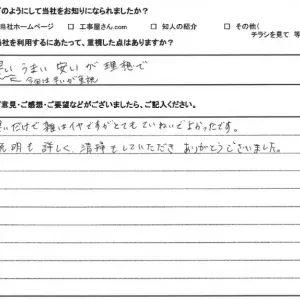 どのようにして当社をお知りになられましたか?
当社ホームページ □ 工事屋さん.com □ 知人の紹介 □ その他(
チラシを見て 等
当社を利用するにあたって、重視した点はありますか?
早い うまい 安い が 理想で
今回は早いが重視
ご意見・ご感想・ご要望などがございましたら、ご記入ください。
早いだけで雑はイヤですがとてもていねいでよかったです。
説明も 詳しく、清掃もしていただき ありがとうございました。